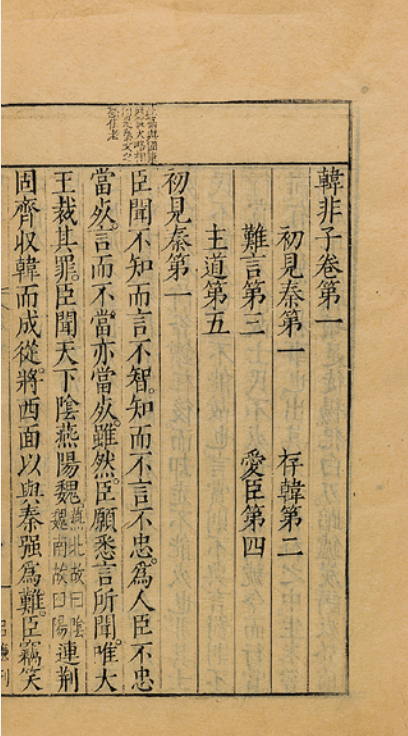 韓非子卷第一
初見秦第一 存韓第二
難言第三 愛臣第四
主道第五
初見秦第一
臣聞不知而言不智。知而不言不忠。為人臣不忠
當死。言而不當亦當死。雖然。臣願悉言所聞。唯大
王裁其罪。臣聞天下陰燕陽魏燕北故曰陰魏南故曰陽連荆
固齊收韓而成從。將西面以與秦强為難。臣竊笑